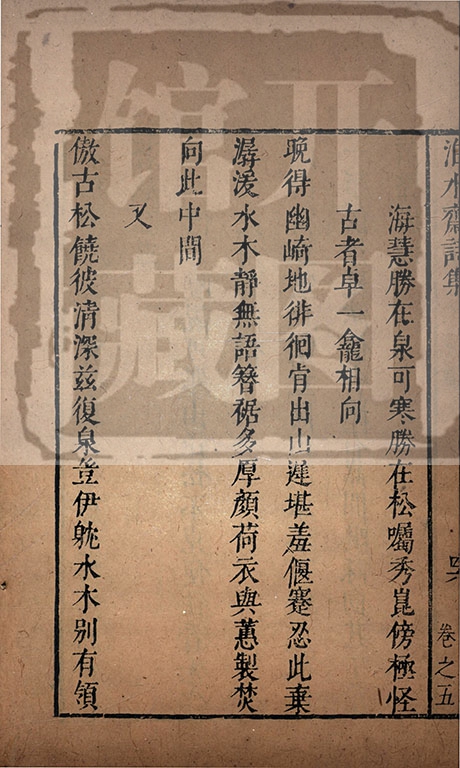 齋詩集
卷之五
海慧勝在泉可寒勝在松囑秀崑傍極怪
古者卓一龕相向
晚得幽崎地徘徊肯出山遲堪羞偃蹇忍此棄
潺湲水木靜無語簪裾多厚顏荷衣與蕙製焚
向此中間
又
傲古松饒彼清深茲復泉登伊躭水木別有領
开图
馆藏